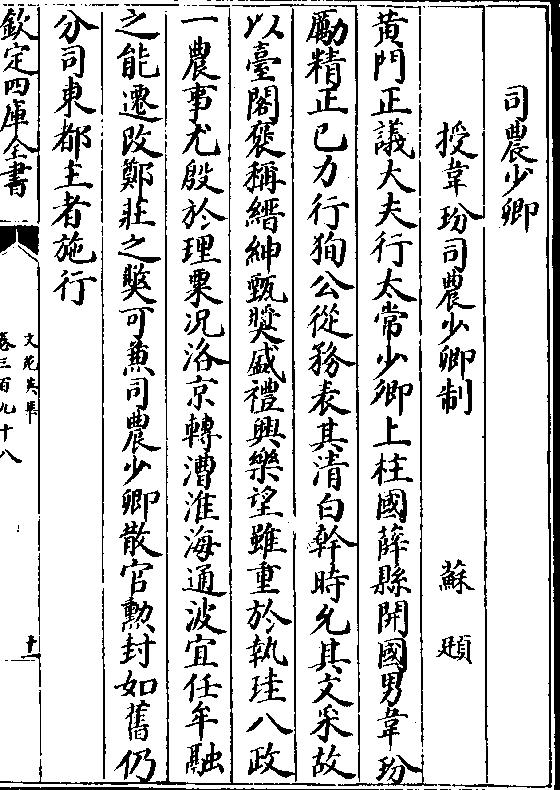 司農少卿
授韋玢司農少卿制 蘇頲
黄門正議大夫行太常少卿上柱國薛縣開國男韋玢
勵精正己力行狥公從務表其清白幹時允其文采故
以臺閣襃稱縉紳甄奬盛禮興樂望雖重於執珪八政
一農事尤殷於理粟况洛京轉漕淮海通波宜任牟融
之能遷改鄭莊之奬可兼司農少卿散官勲封如舊仍
分司東都主者施行
欽定四庫全書
文苑英華
卷三百九十八
十一